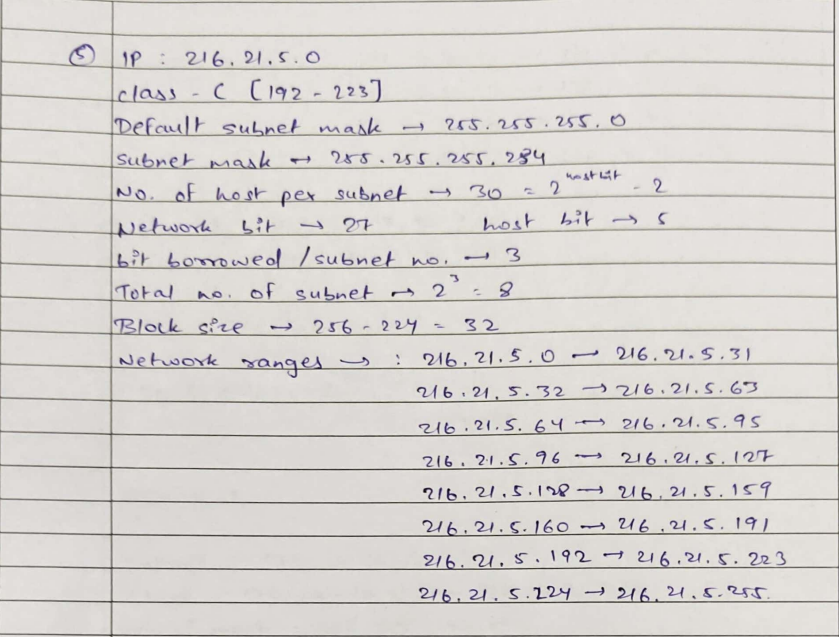 ⑤ IP : 216.21.5.0
class - C [192 - 223]
Default subnet mask → 255.255.255.0
subnet mask → 255.255.255.224
No. of host per subnet → 30 = 2^host bit - 2
Network bit → 27 host bit → 5
bit borrowed / subnet no. → 3
Total no. of subnet → 2^3 = 8
Block size → 256 - 224 = 32
Network ranges → : 216.21.5.0 → 216.21.5.31
216.21.5.32 → 216.21.5.63
216.21.5.64 → 216.21.5.95
216.21.5.96 → 216.21.5.127
216.21.5.128 → 216.21.5.159
216.21.5.160 → 216.21.5.191
216.21.5.192 → 216.21.5.223
216.21.5.224 → 216.21.5.255.